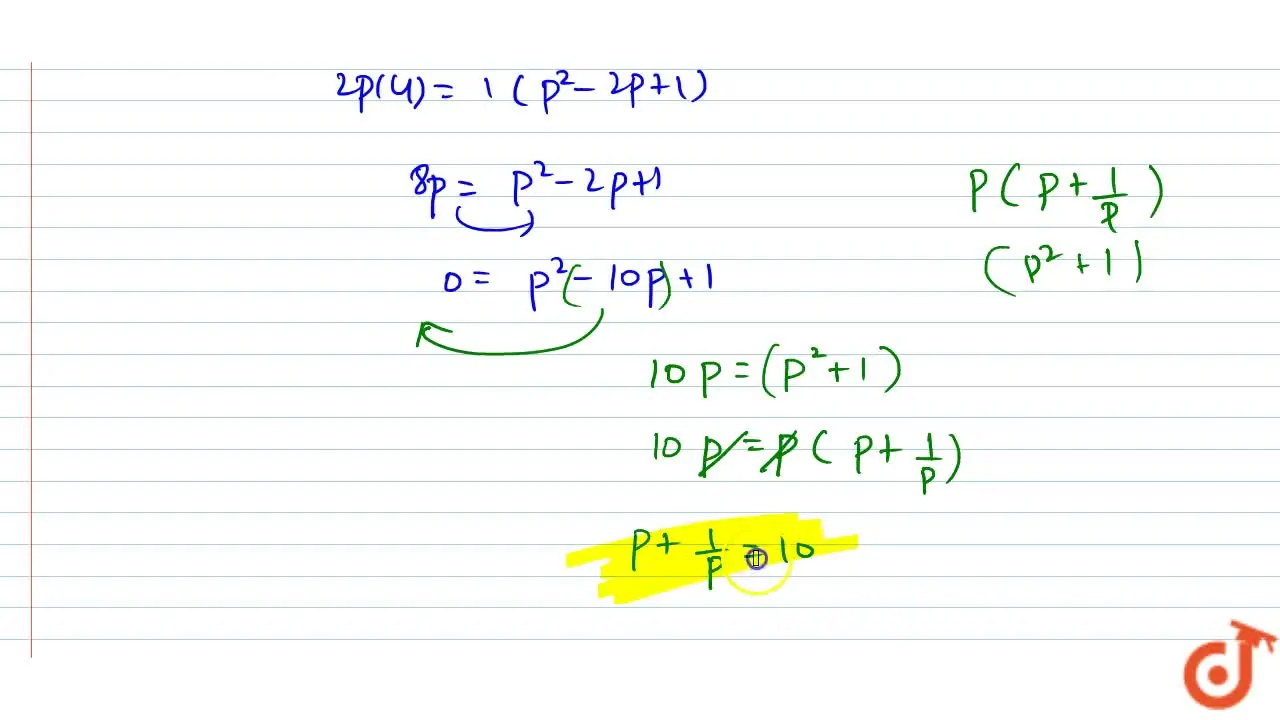 2p(4) = 1 ( p² - 2p + 1 )
8p = p² - 2p + 1
0 = p² ( - 10p ) + 1
p ( p + 1/p )
( p² + 1 )
10 p = ( p² + 1 )
10 p = p ( p + 1/p )
p + 1/p = 10